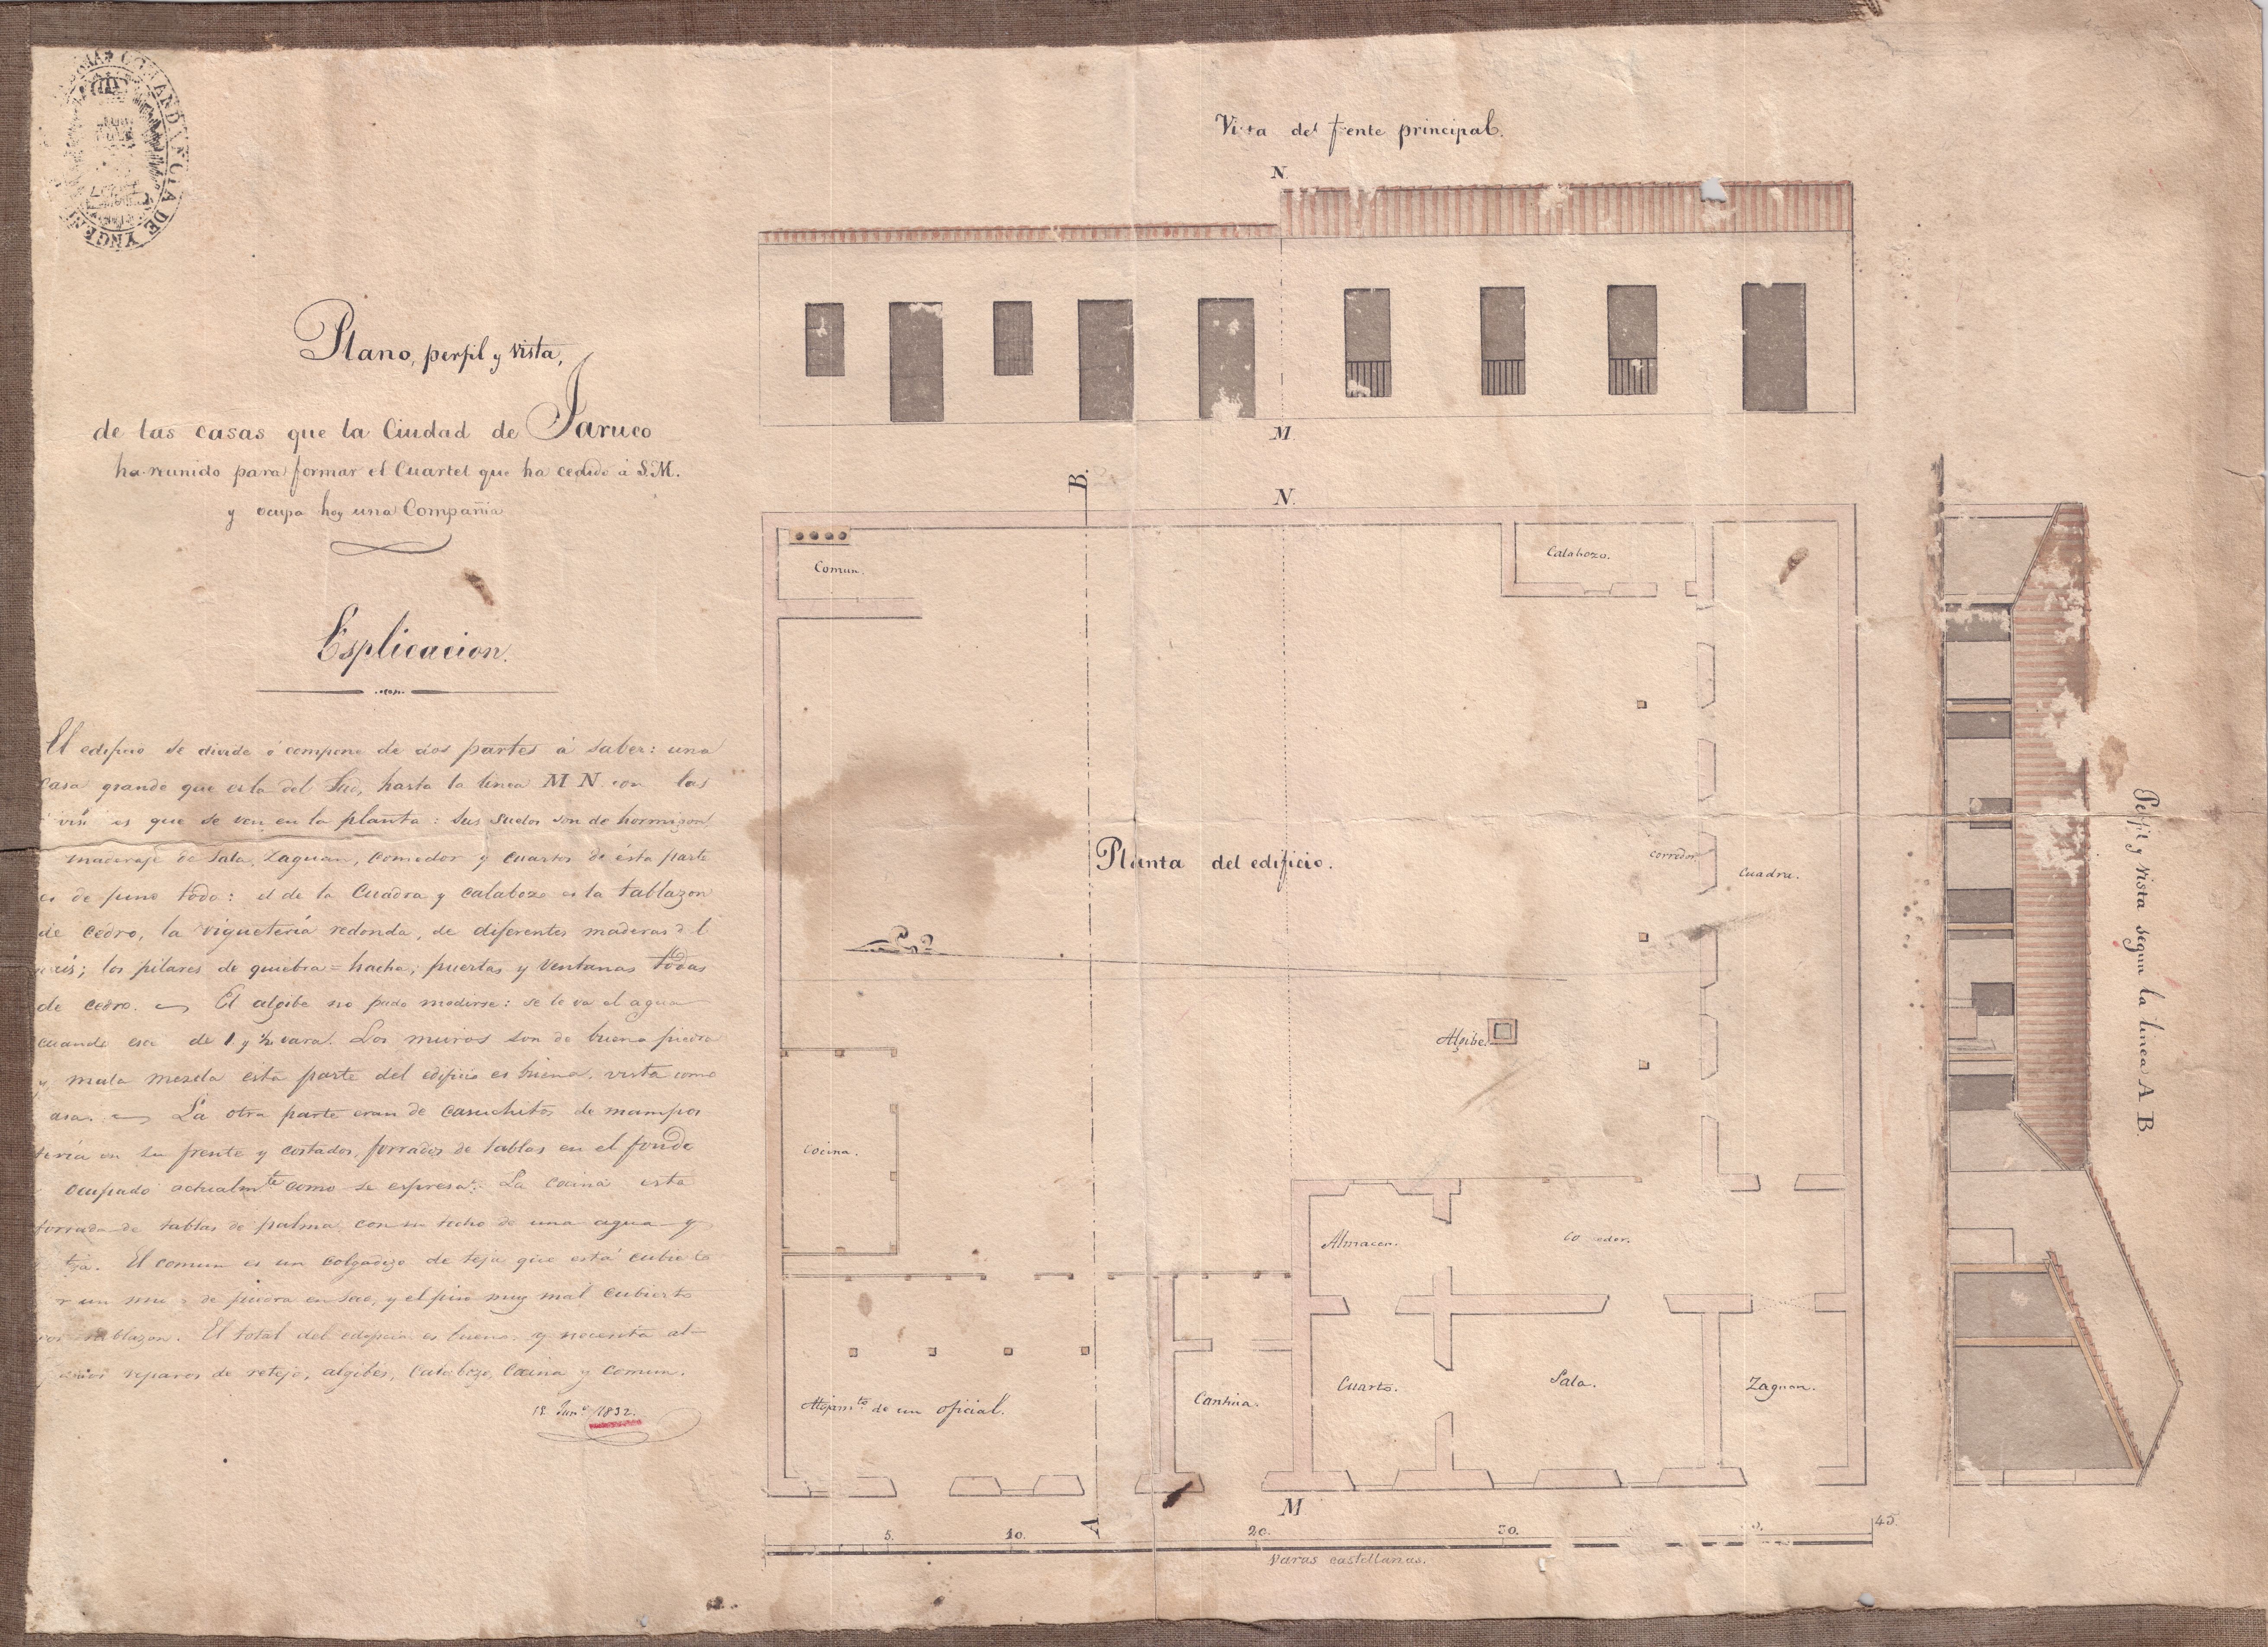 COMANDANCIA DE YNGEN
Plano, perfil y vista,
de las casas que la Ciudad de Jaruco
ha reunido para formar el Cuartel que ha cedido á S.M.
y ocupa hoy una Compañia
Esplicacion.
El edificio se divide ó compone de dos partes á saber: una
casa grande que esta del Sud, hasta la linea M N con las
que se ven en la planta: sus suelos son de hormigon
maderaje de Sala, Zaguan, comedor y cuartos de ésta parte
es de pino todo: el de la Cuadra y calabozo es la tablazon
de cedro, la viguetería redonda, de diferentes maderas
los pilares de quiebra=hacha, puertas y ventanas todas
de cedro. El algibe no pudo medirse: se le va el agua
cuando de 1 y ½ vara. Los muros son de buena piedra
y mala mezcla esta parte del edificio es buena, vista como
La otra parte eran de casuchitos de mampos
tería en su frente y costados, forrados de tablas en el fondo
ocupado actualm.te como se espresa. La cocina esta
forrada de tablas de palma con su techo de una agua y
El comun es un colgadizo de teja que está cubierto
un de piedra en seco, y el piso muy mal cubierto
El total del edificio es bueno y necesita al-
reparos de retejo, algibes, calabozo, Cocina y comun.
1832.
Vista del frente principal.
N.
M.
B.
N.
Comun.
Calabozo.
Planta del edificio.
corredor.
Cuadra.
Algibe.
Cocina.
Almacen.
Alojam.to de un oficial.
Cantina.
Cuarto.
Sala.
Zaguan.
A
M
5. 10. 20. 30. 45.
Varas castellanas.
Perfil y vista segun la linea A B.